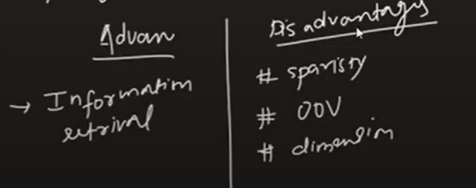 Advan
→ Information
retrival
Disadvantages
# sparisty
# OOV
# dimension